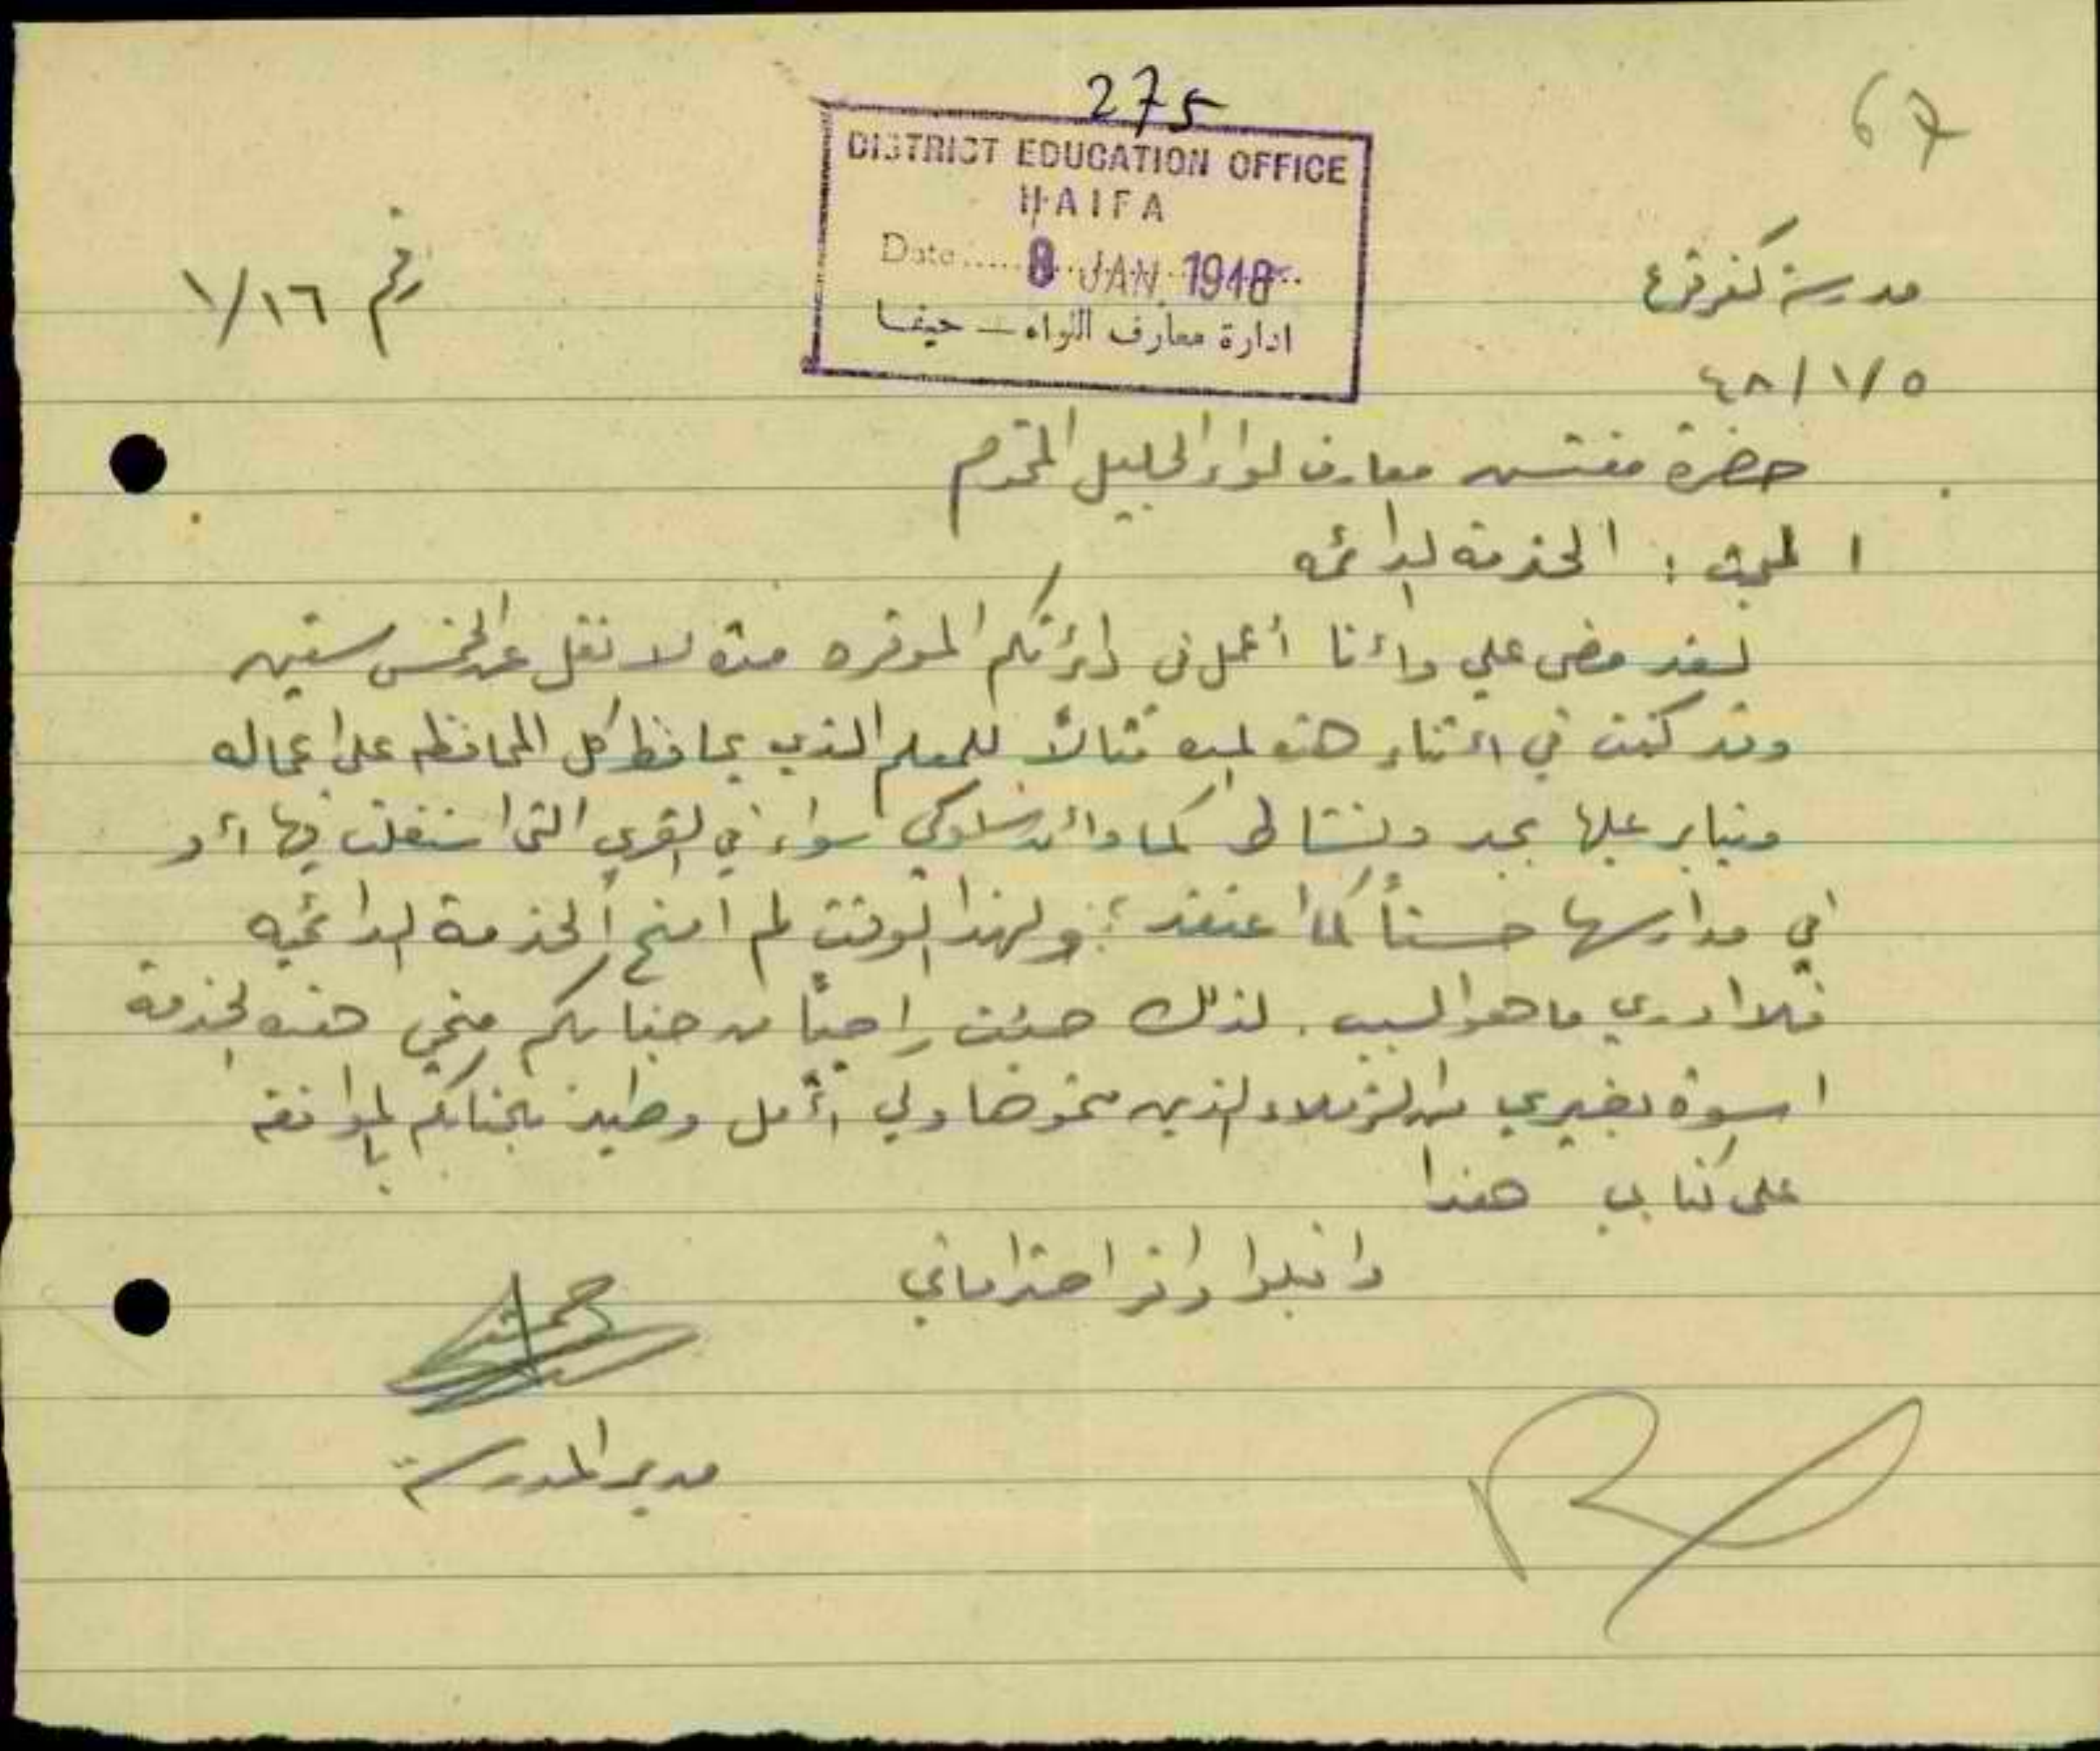 275
67
DISTRICT EDUCATION OFFICE
HAIFA
Date..... 8 JAN 1948
ادارة معارف اللواء — حيفا
مدرسة كفر قرع
رقم ١/١٦
٤٨/١/٥
حضرة مفتش معارف لواء الجليل المحترم
المبحث : الخدمة الدائمه
لقد مضى علي وأنا أعمل في دائرتكم الموقره مدة لا تقل عن الخمس سنين
وقد كنت في أثناء هذه المده مثالاً للمعلم الذي يحافظ كل المحافظه على اعماله
ويثابر عليها بجد ونشاط كما وأن سلوكي سواء في القرى التي اشتغلت فيها أو
في مدارسها حسناً كما اعتقد ولهذا الوقت لم امنح الخدمة الدائميه
فلا ادري ما هو السبب . لذلك جئت راجياً من جنابكم منحي هذه الخدمة
اسوة بغيري من الزملاء الذين منحوها ولي أمل وطيد بجنابكم بالموافقه
على كتابي هذا
واقبلوا وافر احتراماتي
مدير المدرسة